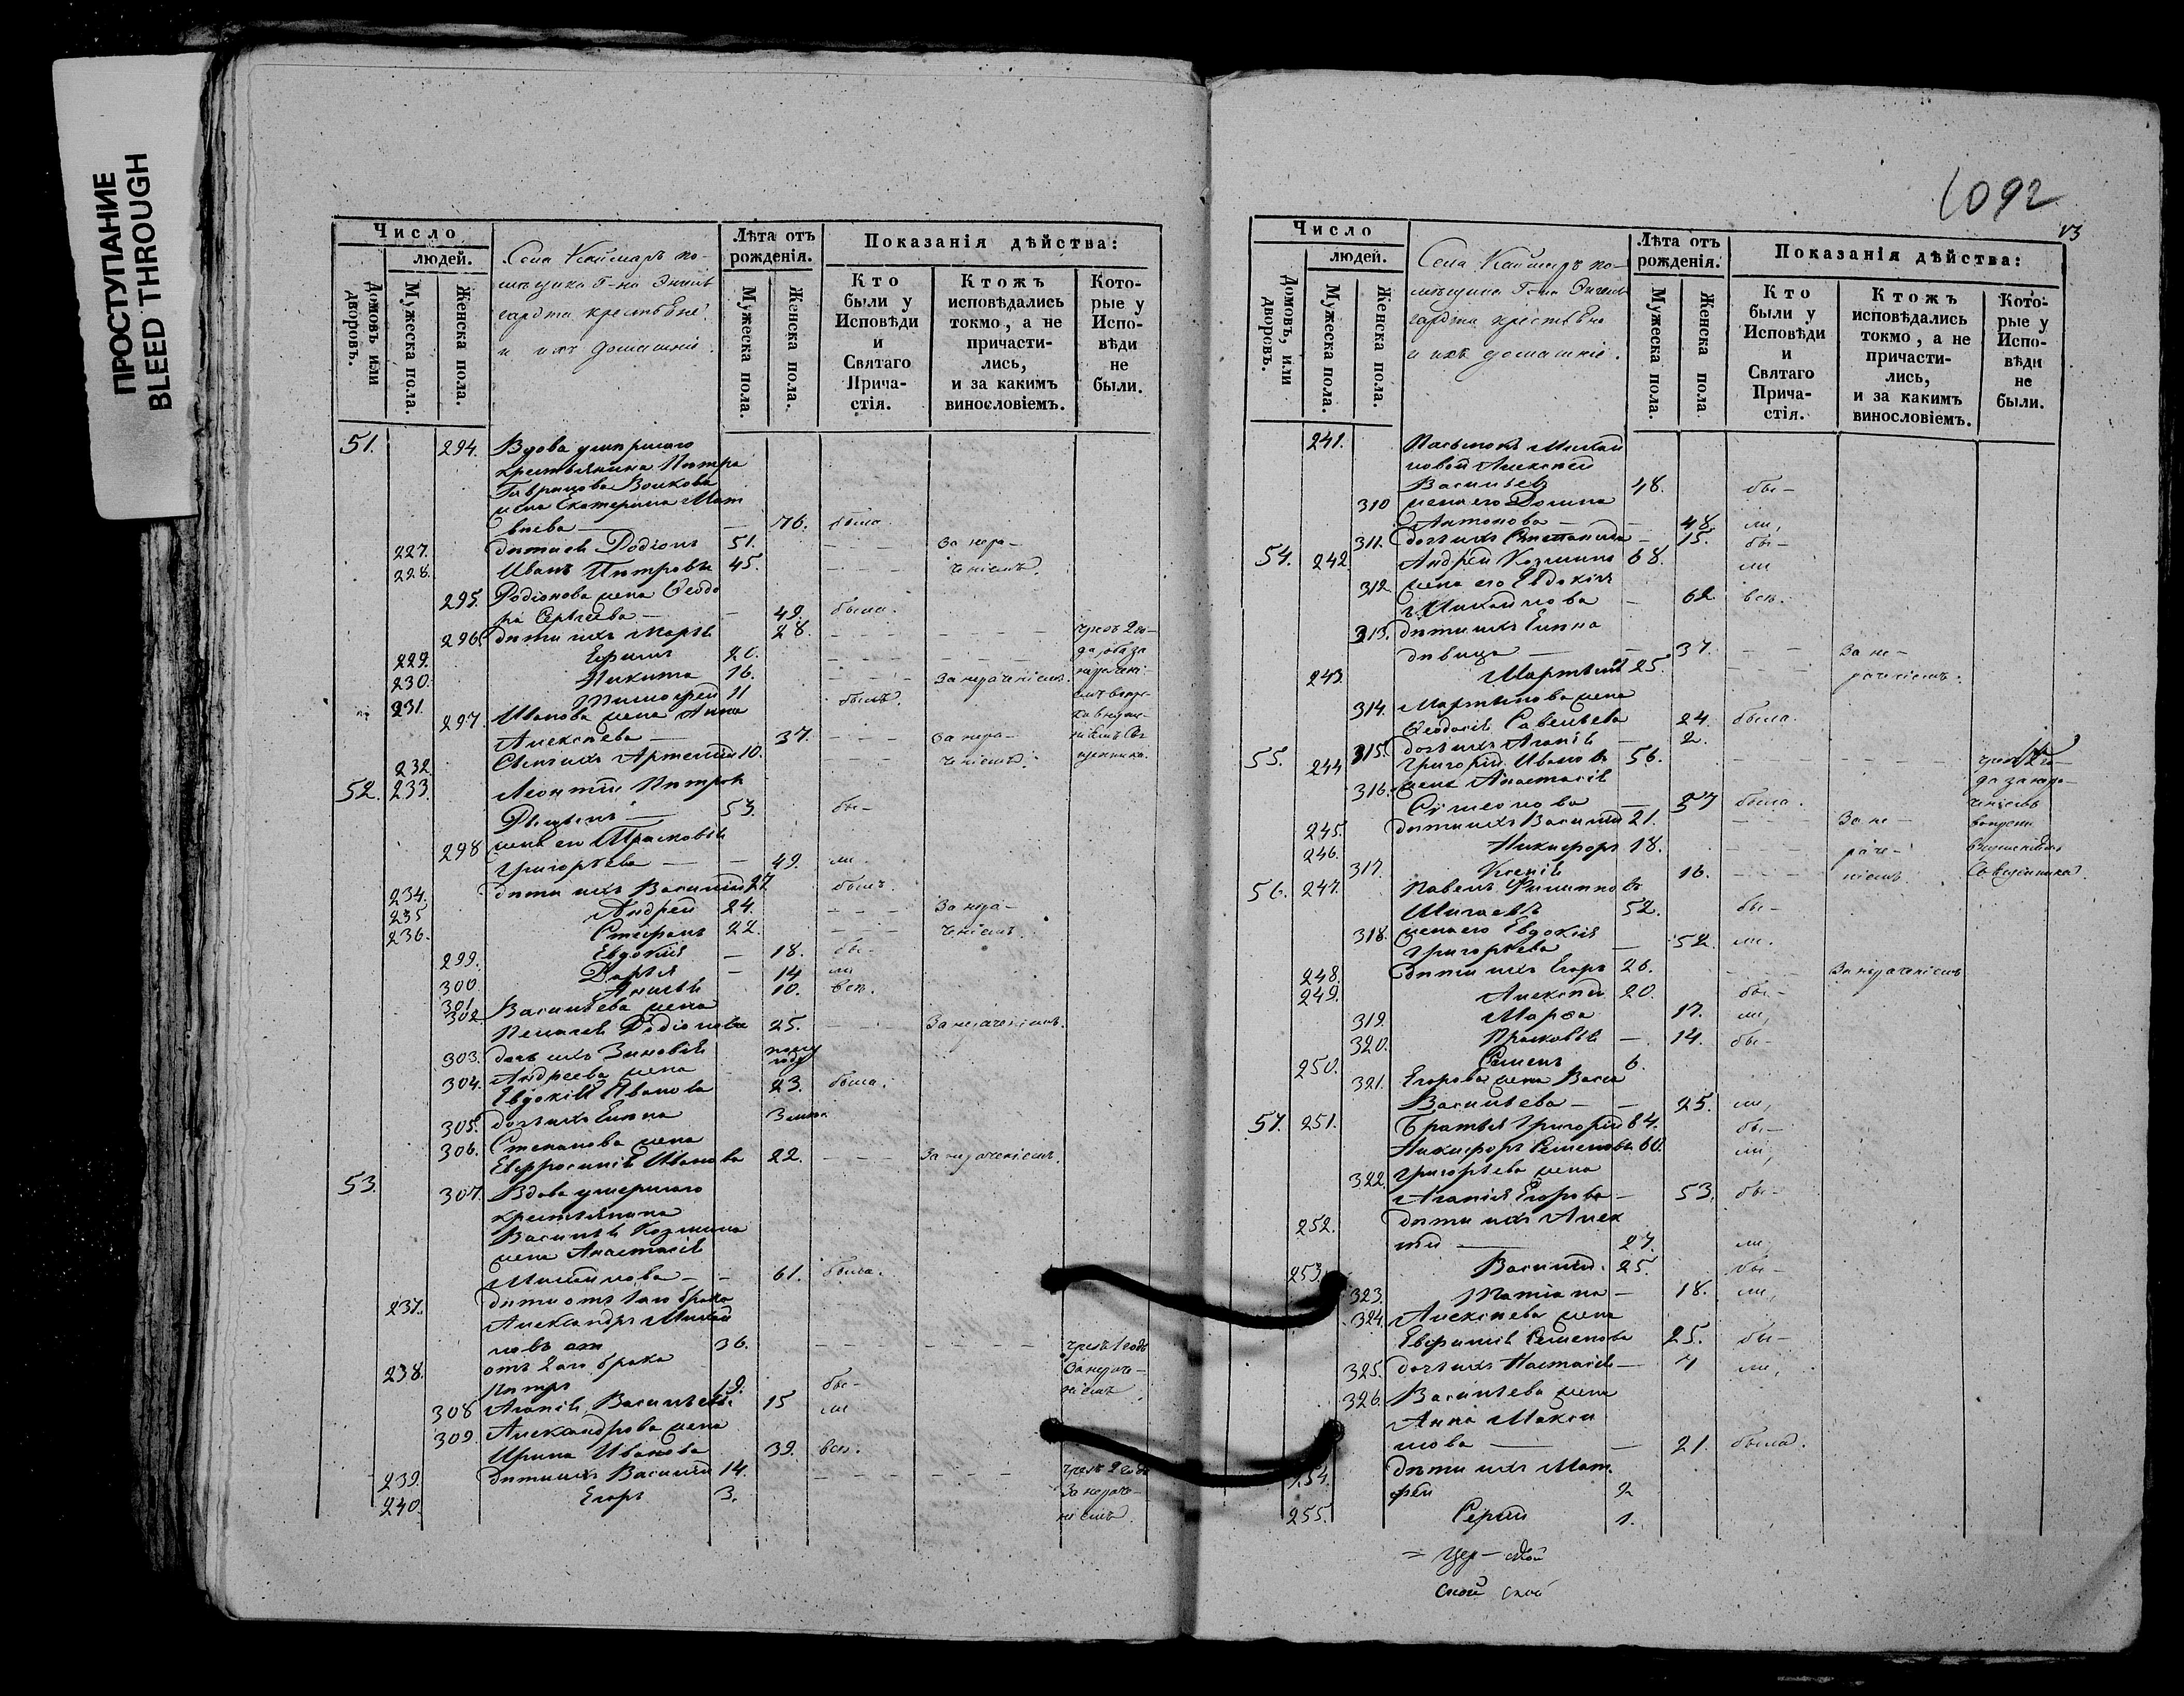 ПРОСТУПАНИЕ
BLEED THROUGH
Число
людей.
Домовъ или дворовъ.
Мужеска пола.
Женска пола.
Села Каймаръ по-
мѣщика Г-на Энгель
гардта крестьяне
и ихъ домашніе.
Лѣта отъ рожденія.
Мужеска пола.
Женска пола.
Показанія дѣйства:
Кто были у Исповѣди и Святаго Прича-стія.
Ктожъ исповѣдались токмо, а не причасти-лись, и за какимъ винословіемъ.
Кото-рые у Испо-вѣди не были.
51. 294. Вдова умершаго
крестьянина Петра
Гаврилова Волкова
жена Екатерина Мат
вѣева — — 76. была.
227. дѣти ея Родіонъ 51. - - - За нера-
228. Иванъ Петровы 45. - - - ченіемъ.
295. Родіонова жена Ѳеодо
ра Сергѣева — — 49. была.
296. дѣти ихъ Марья 28. чрезъ 2 го-
229. Ефимъ 20.
230. Никита 16. За нераченіемъ.
231. Тимофей 11 былъ.
297. Иванова жена Анна
Алексѣева — 37. - - - За нера-
232. Сынъ ихъ Артемій 10. ченіемъ.
52. 233. Леонтій Петровъ
53. бы-
298 жена его Прасковья
Григорьева — — 49. ли.
234. дѣти ихъ Василій 27. былъ.
235 Андрей 24. - - - За нера-
236. Стефанъ 22. - - - ченіемъ.
299. Евдокія — 18. бы-
300. Дарья — 14 ли
301. Анисья 10. всѣ.
302. Васильева жена
Пелагея Родіонова 25. - - - За нераченіемъ.
303. дочь ихъ Зиновія полу году
304. Андреева жена
Евдокія Иванова 23. была.
305. дочь ихъ Елена
306. Степанова жена
Евфросинія Иванова 22. - - - За нераченіемъ.
53. 307. Вдова умершаго
крестьянина
Василья Козмина
жена Анастасія
Михайлова — — 61. была.
237. дѣти отъ 1го брака
Александръ Михай
ловъ 36. - - - чрезъ 1 годъ
238. отъ 2го брака За нераче-
Петръ 19. бы- ніемъ
308 Агапія Васильевы 15 ли
309. Александрова жена
Ирина Иванова 39. всѣ.
239. дѣти ихъ Василій 14. - - - чрезъ 2 года
240. Егоръ 3. За нераче-
ніемъ.
1092
13
Число
людей.
Домовъ, или дворовъ.
Мужеска пола.
Женска пола.
Села Каймаръ по-
мѣщика Г-на Энгель
гардта крестьяне
и ихъ домашніе.
Лѣта отъ рожденія.
Мужеска пола.
Женска пола
Показанія дѣйства:
Кто были у Исповѣди и Святаго Прича-стія.
Ктожъ исповѣдались токмо, а не причасти-лись, и за какимъ винословіемъ.
Кото-рые у Испо-вѣди не были.
241. Пасынокъ Михай
ловой Алексей
Васильевъ 48. бы-
310 жена его Домна
Антонова — — 48. ли,
311. дочь ихъ Степанида — 15. бы-
54. 242 Андрей Козминъ 68. ли
312. жена его Евдокія
Михайлова — 62. всѣ.
313. дѣти ихъ Елена
дѣвица — — 37. - - За не-
243. Мартынъ 25. - - раченіемъ.
314. Мартынова жена
Ѳеодосія Савельева 24. была.
315. дочь ихъ Агапія — 2.
55. 244 Григорій Ивановъ 56.
316. жена Анастасія
Симеонова — 57 была.
245. дѣти ихъ Василій 21. - - За не-
246. Никифоръ 18. - - раче-
317. Ксенія 16. - - ніемъ.
56. 247. Павелъ Филипповъ
52. бы-
318. жена его Евдокія
Григорьева — 52. ли.
248. дѣти ихъ Егоръ 26. - - - За нераченіемъ
249. Алексѣй 20. бы-
319. Марѳа 17. ли,
320. Прасковья — 14. бы-
250. Семенъ 6.
321. Егорова жена Васса
Васильева — — 25. ли,
57. 251. Братья Григорій 64. бы-
Никифоръ Семеновы 60. ли,
322. Григорьева жена
Агапія Егорова — 53. бы-
252. дѣти ихъ Алек
сѣй — 27. ли,
253. Василій. 25. бы-
323. Татіана — 18. ли,
324. Алексѣева жена
Евфимія Семенова 25. бы-
325. дочь ихъ Настасія — 7 ли,
326. Васильева жена
Анна Макси
мова — — 21. была.
254. дѣти ихъ Мат
фей 2
255. Сергій 1.